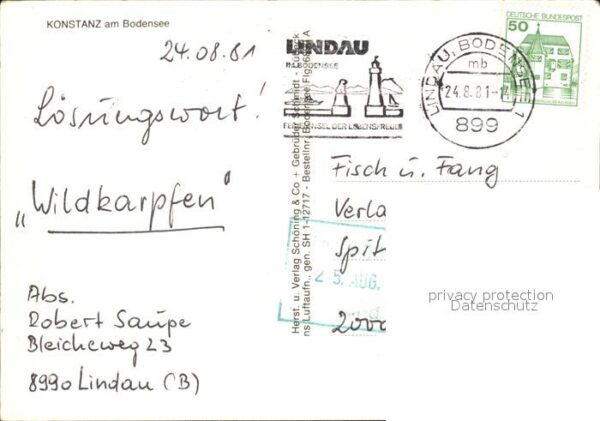 KONSTANZ am Bodensee
24.08.81
Lösungswort!
„Wildkarpfen"
Abs.
Robert Saupe
Bleicheweg 23
8990 Lindau (B)
Herst. u. Verlag Schöning & Co + Gebrüder Schmidt
gen. SH 1-12717 - Bestellnr. Bodensee
LINDAU
IM BODENSEE
FERIENINSEL DER LEBENSFREUDE
LINDAU, BODENSEE 1
mb
24.8.81-
899
DEUTSCHE BUNDESPOST
50
Fisch u. Fang
Verla
Spit
2000
25. AUG.
privacy protection
Datenschutz